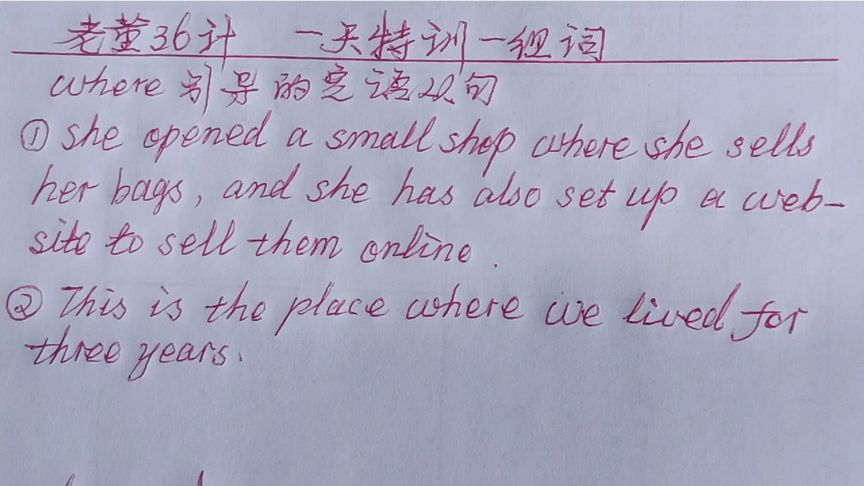 老董36计 一天特训一组词
where引导的定语从句
① She opened a small shop where she sells
her bags, and she has also set up a web-
site to sell them online.
② This is the place where we lived for
three years.